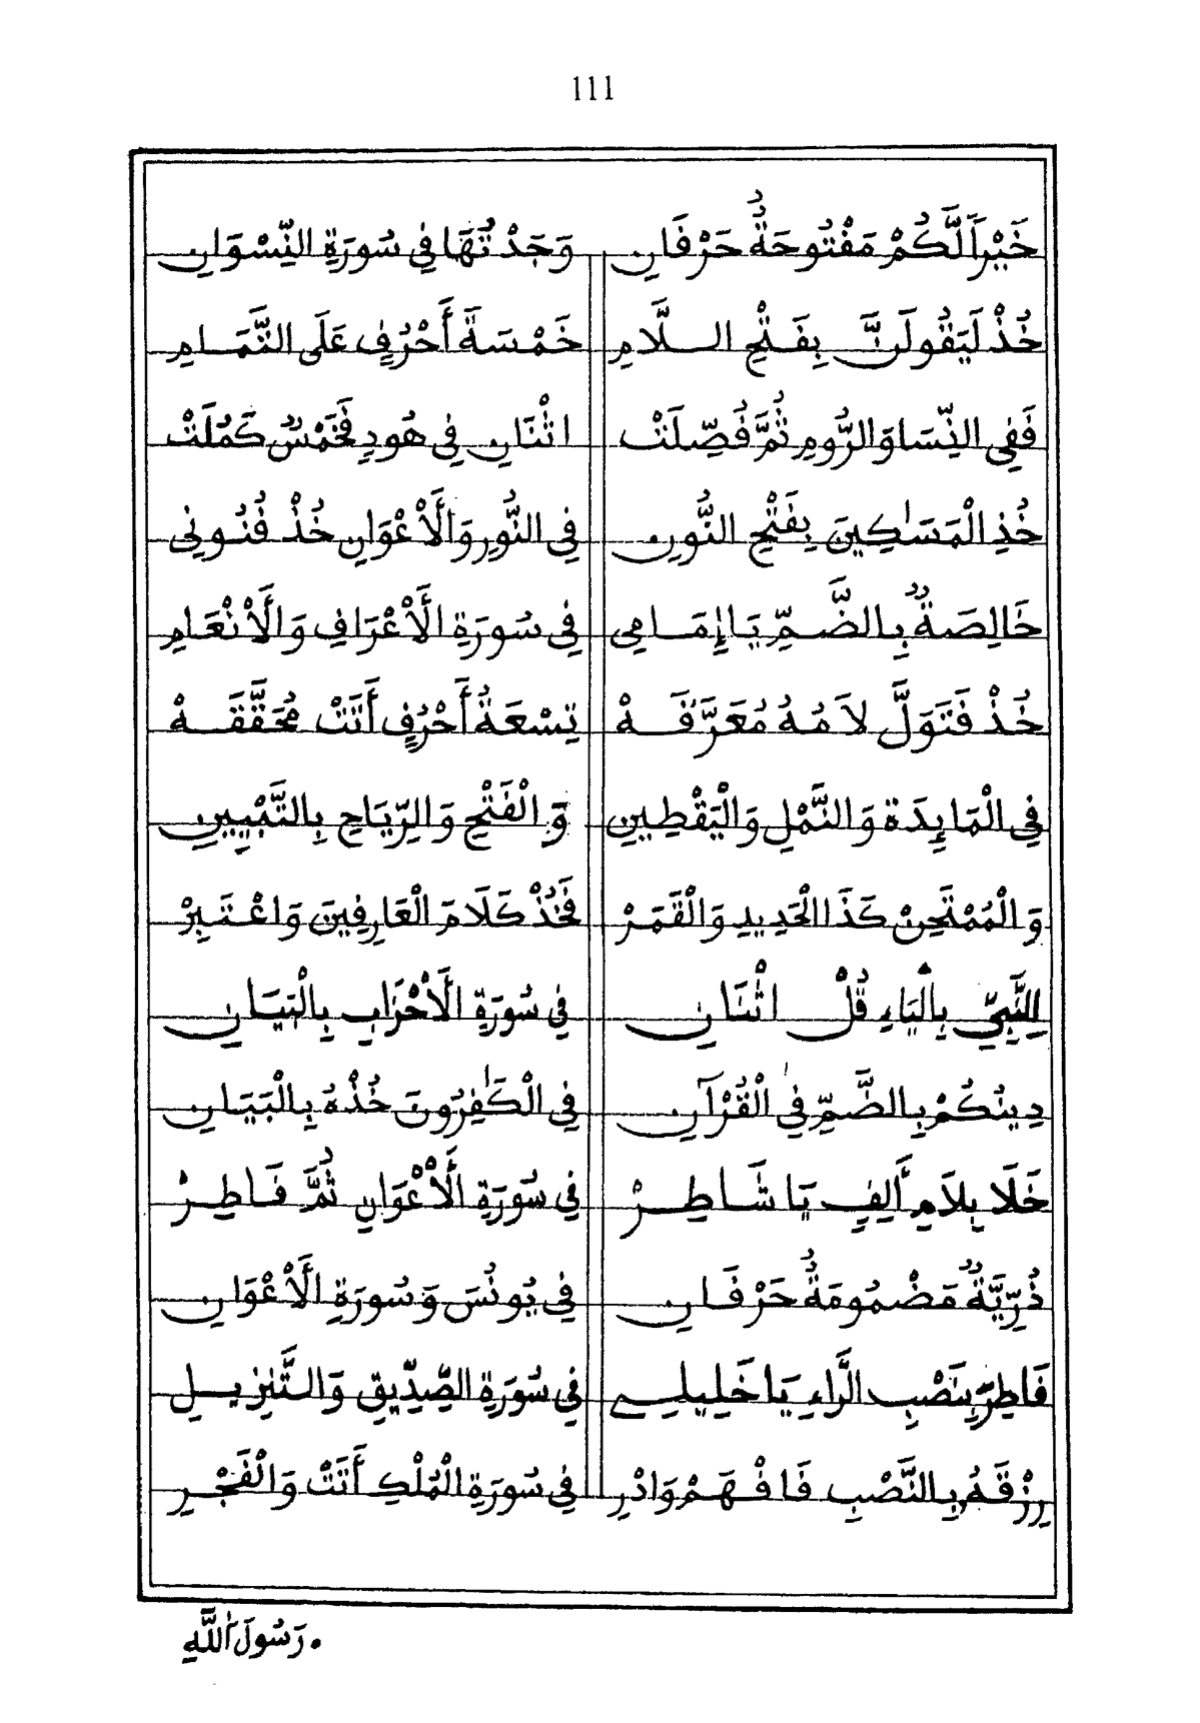 111
خَيْراً لَّكُمْ مَفْتُوحَةٌ حَرْفَانِ وَجَدْتُهَا فِي سُورَةِ النِّسْوَانِ
خُذْ لَيَقُولَنَّ بِفَتْحِ السلَّامِ خَمْسَةَ أَحْرُفٍ عَلَى التَّمَامِ
فَفِي النِّسَا وَالرُّومِ ثُمَّ فُصِّلَتْ اثْنَانِ فِي هُودٍ فَخَمْسٌ كَمُلَتْ
خُذِ الْمَسَٰكِينَ بِفَتْحِ النُّونِ فِي النُّورِ وَالْأَعْوَانِ خُذْ فُنُونِي
خَالِصَةٌ بِالضَّمِّ يَا إِمَامِي فِي سُورَةِ الْأَعْرَافِ وَالْأَنْعَامِ
خُذْ فَتَوَلَّ لاَمُهُ مُعَرَّقَهْ تِسْعَةُ أَحْرُفٍ أَتَتْ مُحَقَّقَهْ
فِي الْمَايِدَة وَالنَّمْلِ وَالْيَقْطِينِ وَالْفَتْحِ وَالرِّيَاحِ بِالتَّبْيِينِ
وَالْمُمْتَحِنْ كَذَا الْحَدِيدِ وَالْقَمَرْ فَخُذْ كَلَامَ الْعَارِفِينَ وَاعْتَبِرْ
لِلنَّبِيِّ بِالْيَاءِ قُلْ اثْنَانِ فِي سُورَةِ الْأَحْزَابِ بِالْبَيَانِ
دِينُكُمْ بِالضَّمِّ فِي الْقُرْآنِ فِي الْكَٰفِرُونَ خُذْهُ بِالْبَيَانِ
خَلَا بِلاَمِ أَلِفٍ يَا شَاطِرْ فِي سُورَةِ الْأَعْوَانِ ثُمَّ فَاطِرْ
ذُرِّيَّةٌ مَضْمُومَةٌ حَرْفَانِ فِي يُونُسَ وَسُورَةِ الْأَعْوَانِ
فَاطِرَ بِنَصْبِ الرَّاءِ يَا خَلِيلِي فِي سُورَةِ الصِّدِّيقِ وَالتَّنْزِيلِ
رِزْقَهُ بِالنَّصْبِ فَافْهَمْ وَادْرِ فِي سُورَةِ الْمُلْكِ أَتَتْ وَالْفَجْرِ
رَسُولَ اللَّهِ